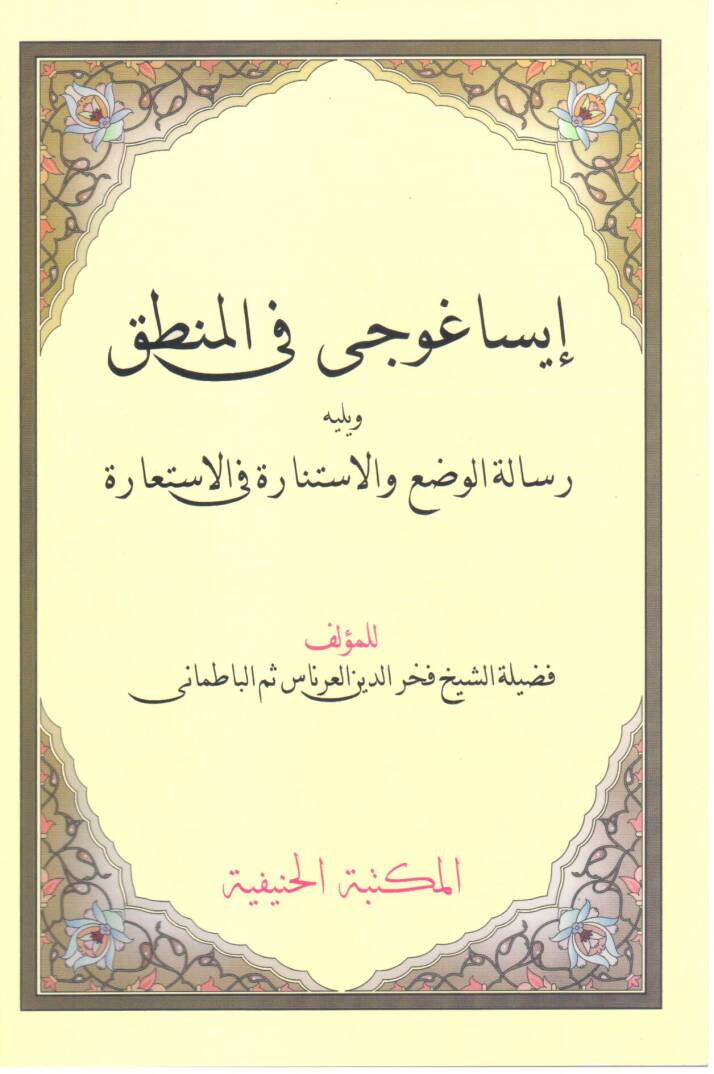 إيساغوجى فى المنطق
ويليه
رسالة الوضع والاستنارة فى الاستعارة
للمؤلف
فضيلة الشيخ فخر الدين العرناسى ثم الباطمانى
المكتبة الحنيفية